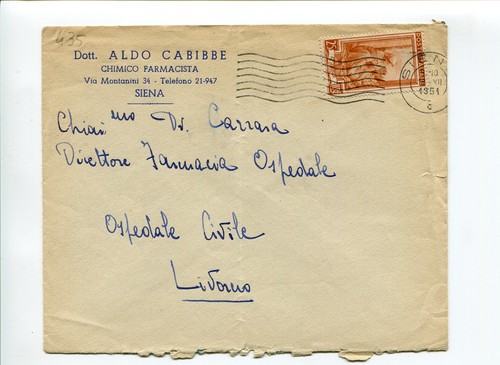 435
Dott. ALDO CABIBBE
CHIMICO FARMACISTA
Via Montanini 34 - Telefono 21-947
SIENA
SIEN
10
VII
1951
C
Chiar mo Dr. Carrara
Direttore Farmacia Ospedale
Ospedale Civile
Livorno